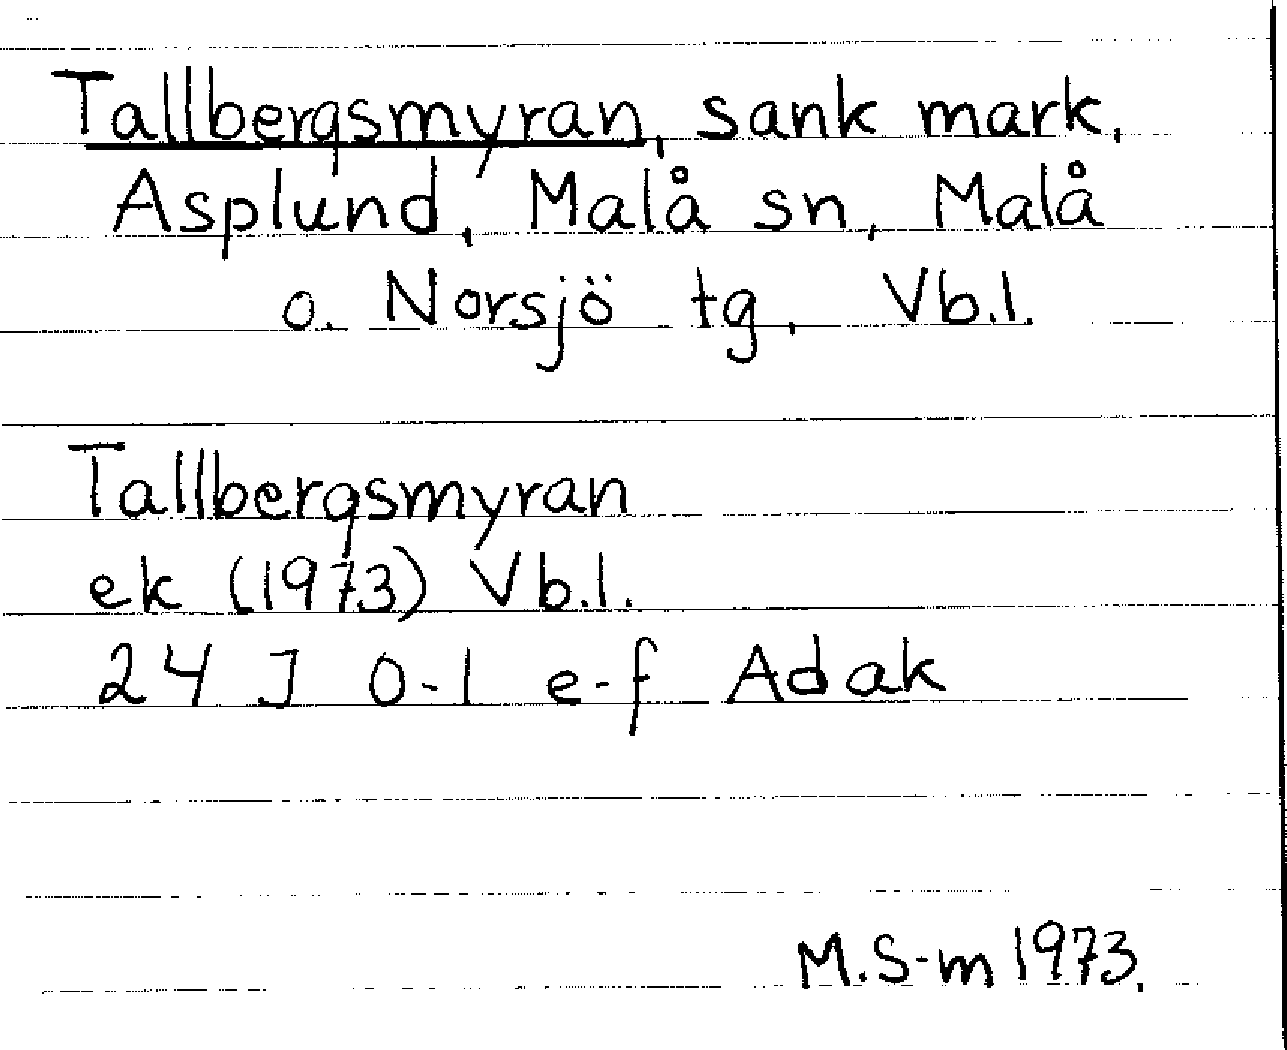 Tallbergsmyran, sank mark,
Asplund, Malå sn, Malå
o. Norsjö tg, Vb.l.
Tallbergsmyran
ek (1973) Vb.l.
24 J 0-1 e-f Adak
M.S-m 1973.